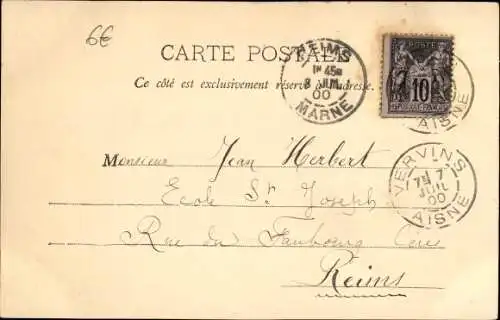 6€
CARTE POSTALE
Ce côté est exclusivement réservé à l'adresse.
REIMS
8 JUIL
00
MARNE
POSTE
10
AISNE
VERVINS
7
JUIL
00
AISNE
Monsieur Jean Herbert
Ecole St Joseph
Rue du Faubourg Cérès
Reims